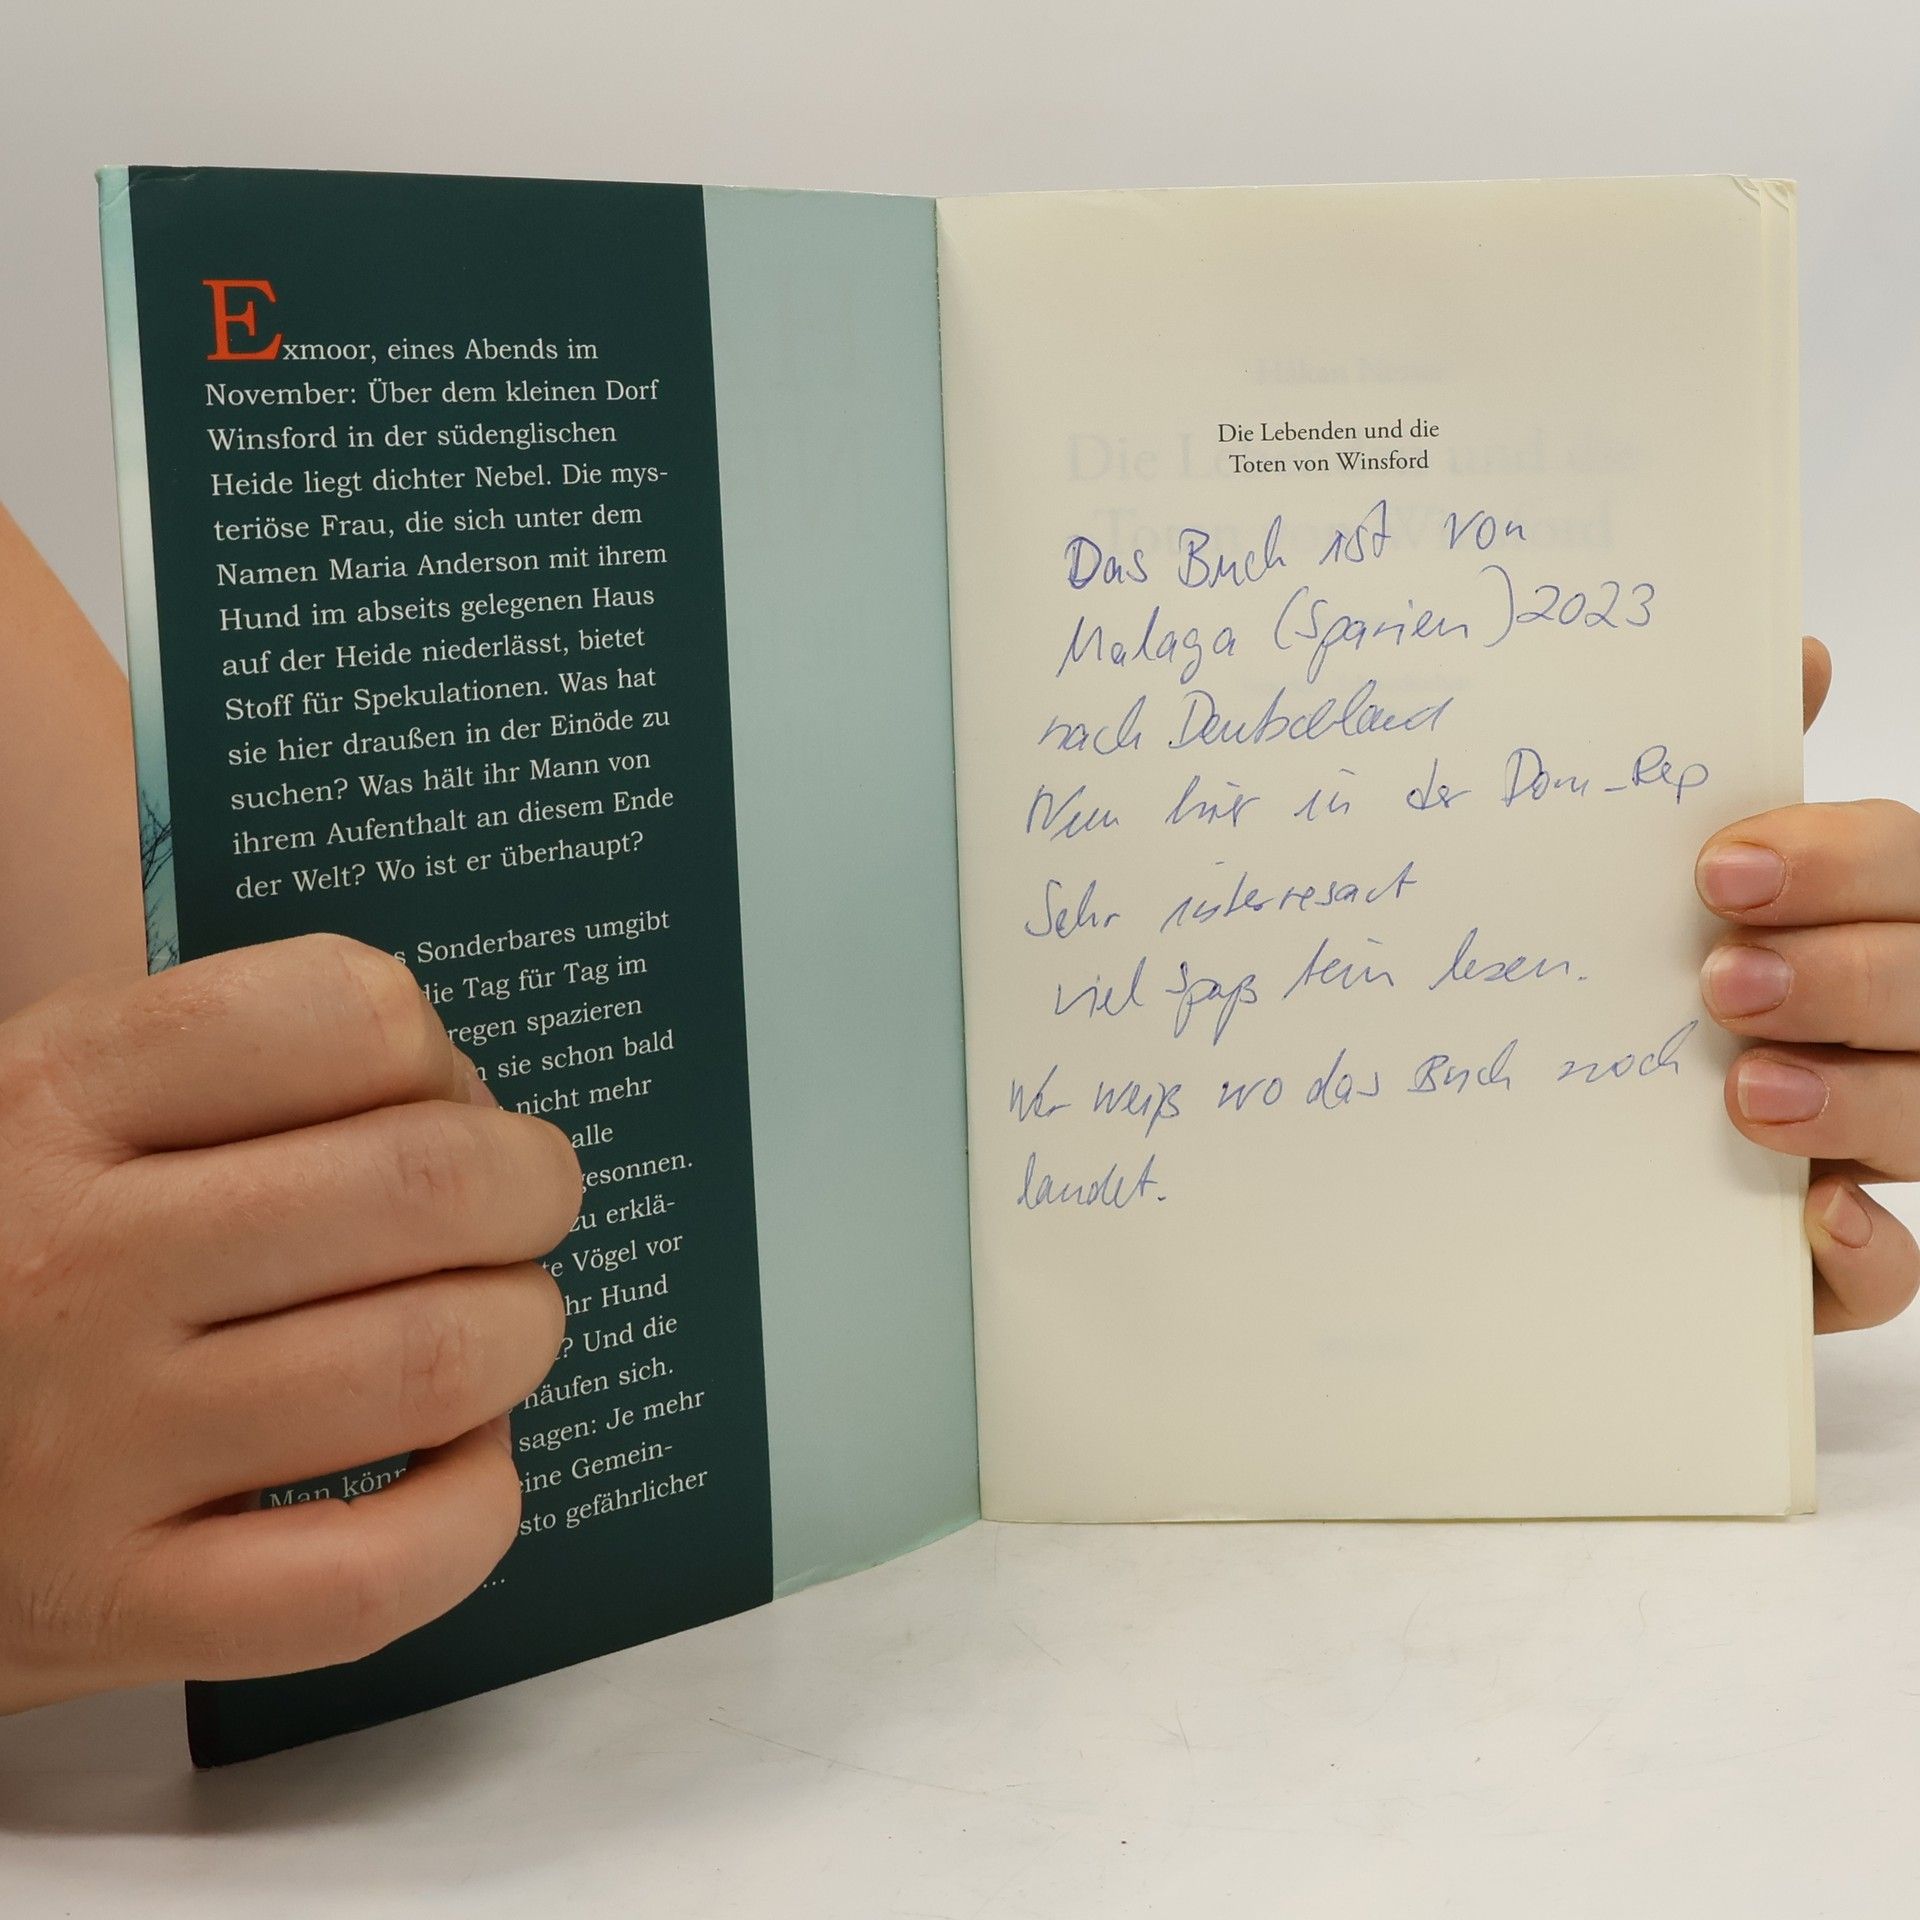 Exmoor, eines Abends im
November: Über dem kleinen Dorf
Winsford in der südenglischen
Heide liegt dichter Nebel. Die mys-
teriöse Frau, die sich unter dem
Namen Maria Anderson mit ihrem
Hund im abseits gelegenen Haus
auf der Heide niederlässt, bietet
Stoff für Spekulationen. Was hat
sie hier draußen in der Einöde zu
suchen? Was hält ihr Mann von
ihrem Aufenthalt an diesem Ende
der Welt? Wo ist er überhaupt?
s Sonderbares umgibt
die Tag für Tag im
regen spazieren
sie schon bald
nicht mehr
alle
gesonnen.
zu erklä-
te Vögel vor
hr Hund
? Und die
häufen sich.
sagen: Je mehr
Man könn eine Gemein-
sto gefährlicher
...
Die Lebenden und die
Toten von Winsford
Das Buch ist von
Malaga (Spanien) 2023
nach Deutschland
Nun hier in der Dom-Rep
Sehr interresant
viel Spaß beim lesen.
Wer weiß wo das Buch noch
landet.